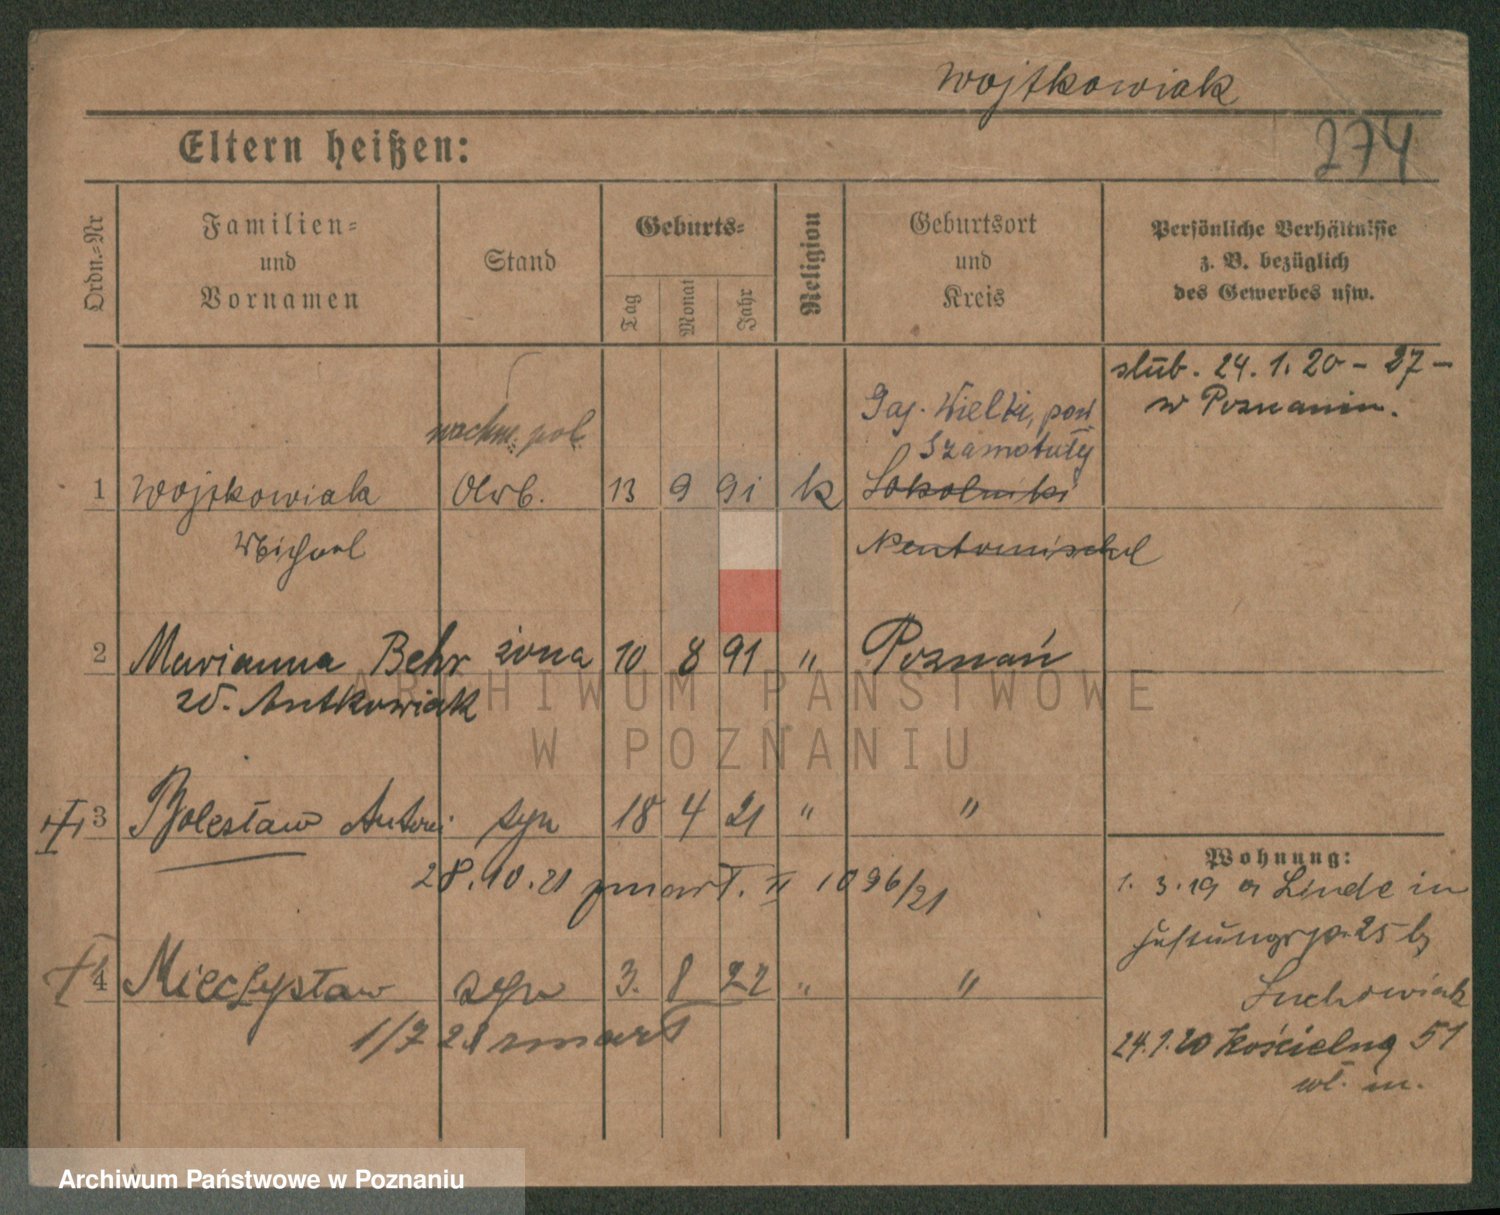 Wojtkowiak
Eltern heißen:
274
Ordn.-Nr
Familien-
und
Vornamen
Stand
Geburts-
Tag
Monat
Jahr
Religion
Geburtsort
und
Kreis
Persönliche Verhältnisse
z. B. bezüglich
des Gewerbes usw.
ślub. 24. 1. 20 - 27 -
w Poznaniu.
Gaj. Wielki, pow
Szamotuły
1 Wojtkowiak 13 9 91 k Sokolniki
Michael Neutomischel
2 Marianna Behr żona 10 8 91 " Poznań
zd. Antkowiak
3 Bolesław Antoni syn 18 4 21 " "
28.10.21 zmarł. II 1096/21
4 Mieczysław syn 3. 8 22 " "
1/7 23 zmarł
Wohnung:
1. 3. 19 a Linde in
25 b
24.1.20 Kościelna 51
wł. m.
ARCHIWUM PAŃSTWOWE
W POZNANIU
Archiwum Państwowe w Poznaniu